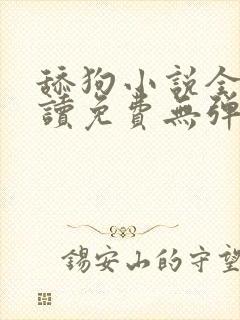 舔狗小说全
讀免費無弹
锡安山的守望